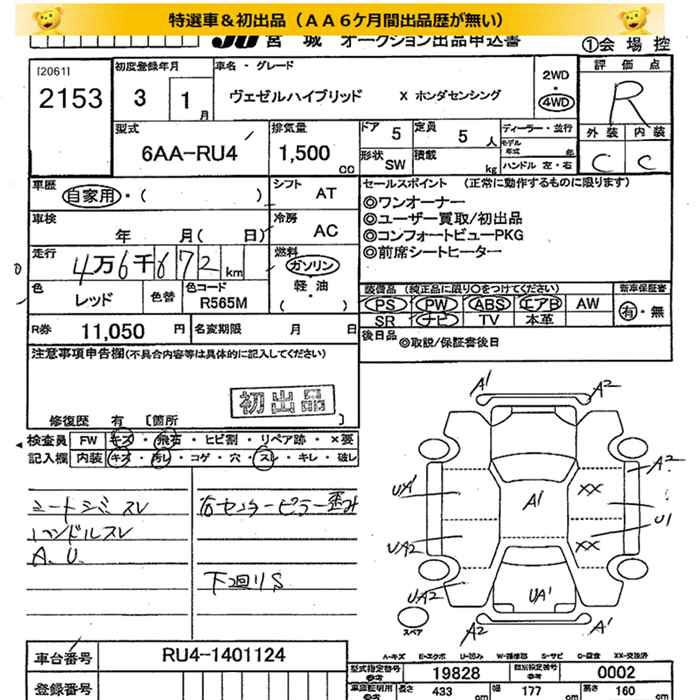 特選車＆初出品（ＡＡ６ケ月間出品歴が無い）
JU 宮 城 オークション出品申込書 ①会 場 控
[2061]
2153
初度登録年月
3 1 月
車名・グレード
ヴェゼルハイブリッド X ホンダセンシング
2WD
・
4WD
評 価 点
R
外 装 内 装
C C
型式
6AA-RU4
排気量
1,500 cc
ドア 5
定員 5 人
形状 SW
積載 kg
ディーラー・並行
モデル年式 年
ハンドル 左・右
車歴
自家用・( )
シフト AT
車検
年 月( 日)
冷房 AC
走行
4万6千672km
燃料
ガソリン
・
軽・油
( )
色 レッド
色替
色コード
R565M
セールスポイント (正常に動作するものに限ります)
◎ワンオーナー
◎ユーザー買取/初出品
◎コンフォートビューPKG
◎前席シートヒーター
装備品 (純正品に限り○をつけてください)
新車保証書
PS PW ABS エアB AW
有・無
SR ナビ TV 本革
後日品 ◎取説/保証書後日
R券 11,050 円
名変期限 月 日
注意事項申告欄(不具合内容等は具体的に記入してください)
初出品
修復歴 有 〔箇所
検査員記入欄
FW キズ・飛石・ヒビ割・リペア跡・×要
内装 キズ・汚レ・コゲ・穴・スレ・キレ・破レ
シートシミスレ
ハンドルスレ
A.U.
右センターピラー歪み
下廻りS
A1 A2
A2
UA1
A1
XX
U1
UA2
XX
UA2
UA1
スペア
A2 A1
A-キズ E-エクボ U-凹み W-補修跡 S-サビ C-腐食 XX-交換済
車台番号 RU4-1401124
登録番号
型式指定番号 参考 19828
類別指定番号 参考 0002
車庫証明用 参考
長さ 433 cm
幅 177 cm
高さ 160 cm